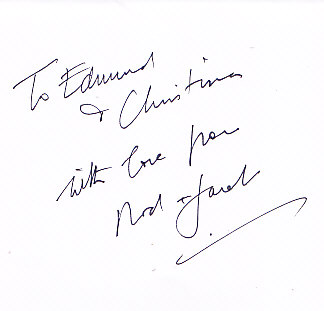 To Edmund
& Christina
with love from
Rod & Sarah